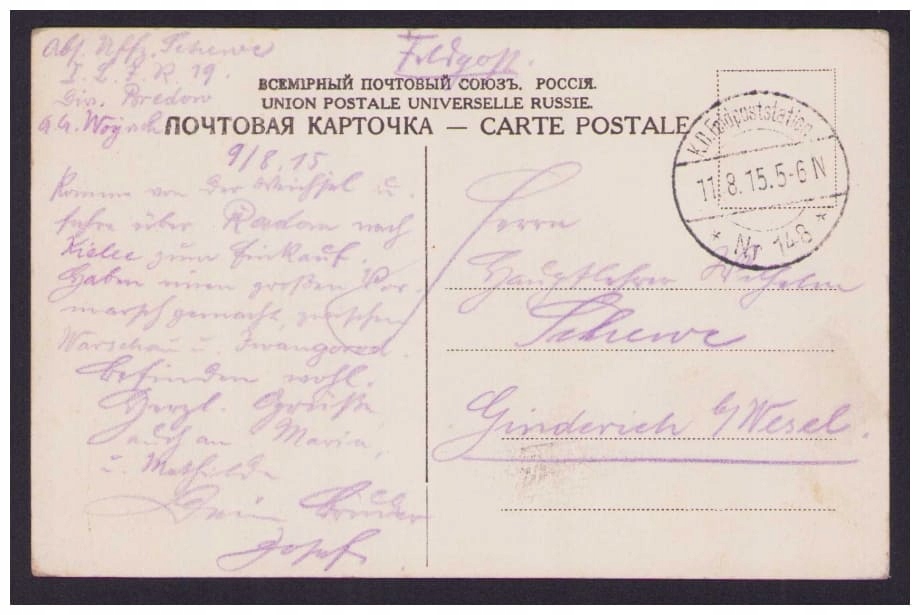 Abs. Uffz. Schewe
I. L. I. R. 19.
Div. Bredow
A.G. Woyrsch
Feldpost.
ВСЕМІРНЫЙ ПОЧТОВЫЙ СОЮЗЪ. РОССІЯ.
UNION POSTALE UNIVERSELLE RUSSIE.
ПОЧТОВАЯ КАРТОЧКА — CARTE POSTALE
K.D. Feldpoststation
11.8.15.5-6 N
* Nr 148 *
9/8.15
Komme von der Weichsel u.
fahre über Radom nach
Kielce zum Einkauf.
Haben einen großen Vor-
marsch gemacht, zwischen
Warschau u. Iwangorod.
Befinden wohl.
Herzl. Grüße
auch an Maria
u. Mathilde
Dein Bruder
Josef
Herrn
Hauptlehrer Wilhelm
Schewe
Ginderich b/Wesel.